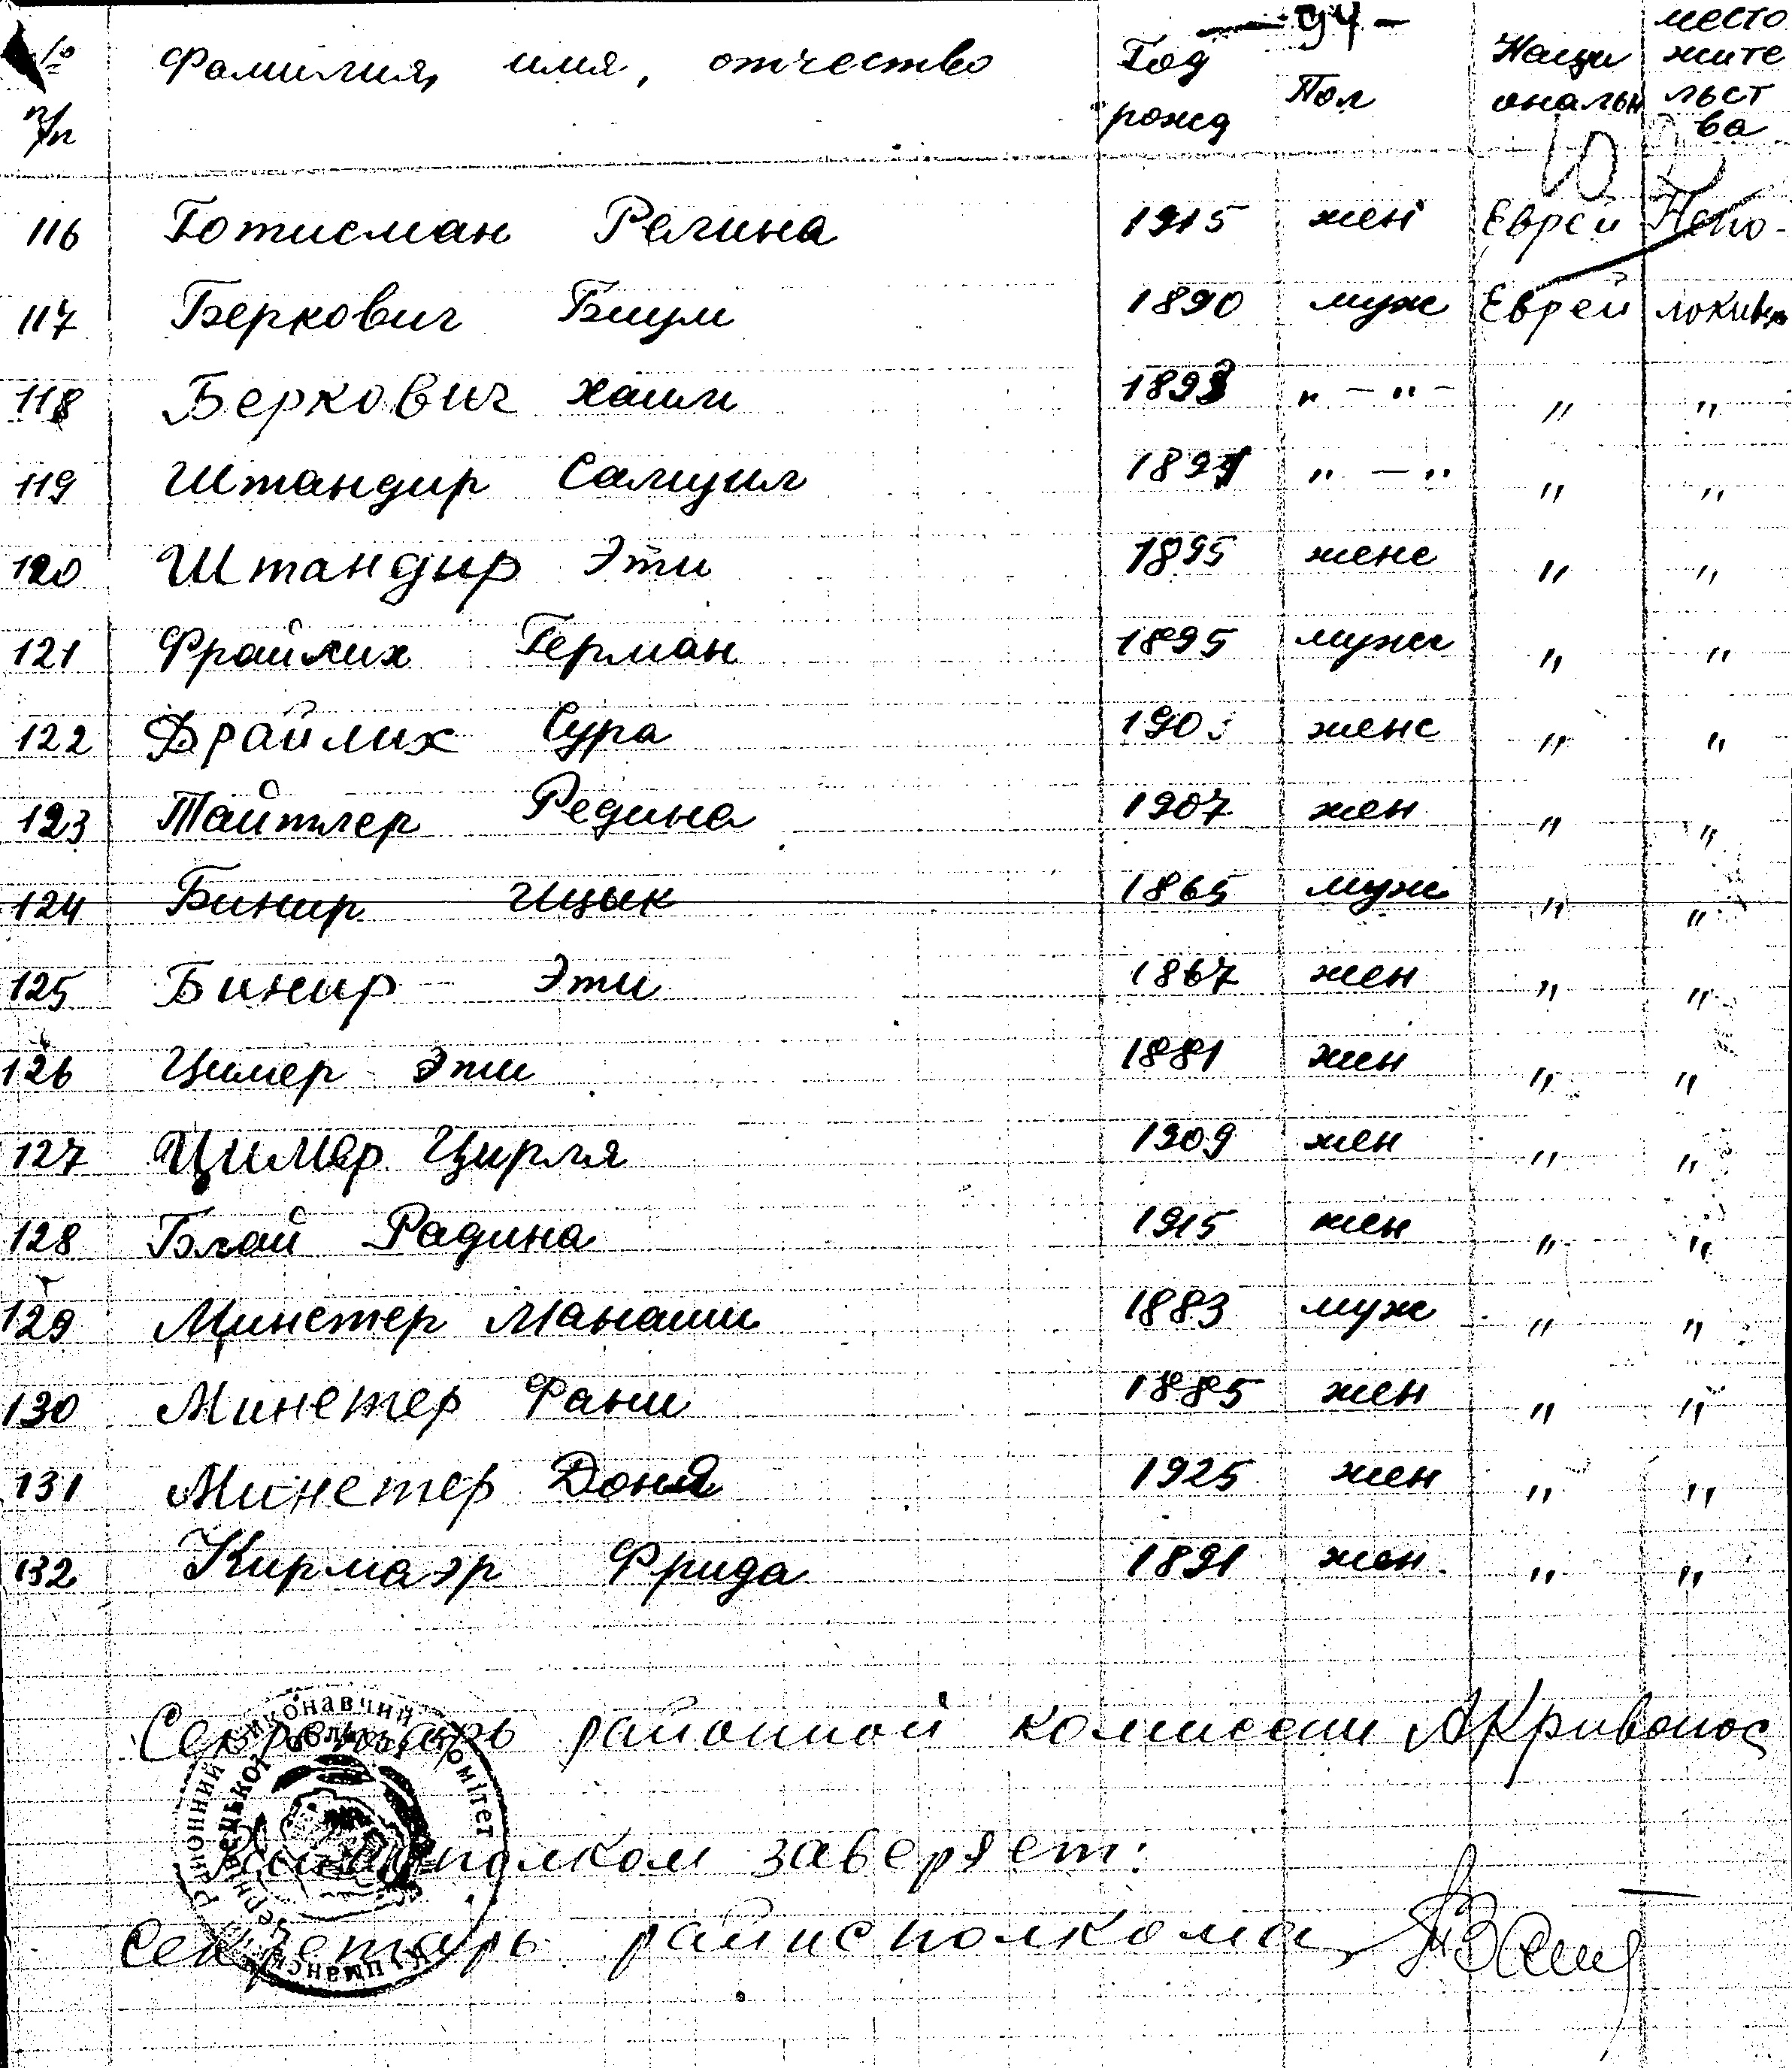 — 94 —
№ п/п Фамилия, имя, отчество Год рожд Пол Наци ональн место жите льст ва
116 Готисман Регина 1915 жен Еврей Непо-
117 Беркович Бицм 1890 муж Еврей
118 Беркович Хаим 1893 „ — „ — „ „
119 Штандир Самуил 1891 „ — „ „ „
120 Штандир Эти 1895 женс „ „
121 Фрайлих Герман 1895 мужс „ „
122 Фрайлих Сура 190 женс „ „
123 Тайтлер Редина 1907 жен „ „
124 Бинир Ицык 1865 муж „ „
125 Бинир Эти 1867 жен „ „
126 Цимер Эти 1881 жен „ „
127 Цимер Цирля 1909 жен „ „
128 Блай Радина 1915 жен „ „
129 Минетер Манаши 1883 муж „ „
130 Минетер Фани 1885 жен „ „
131 Минетер Доня 1925 жен „ „
132 Кирмаэр Фрида 1891 жен „ „
Секретарь районной комиссии АКривонос
заверяет:
Секретарь райисполкома
виконавчий комітет